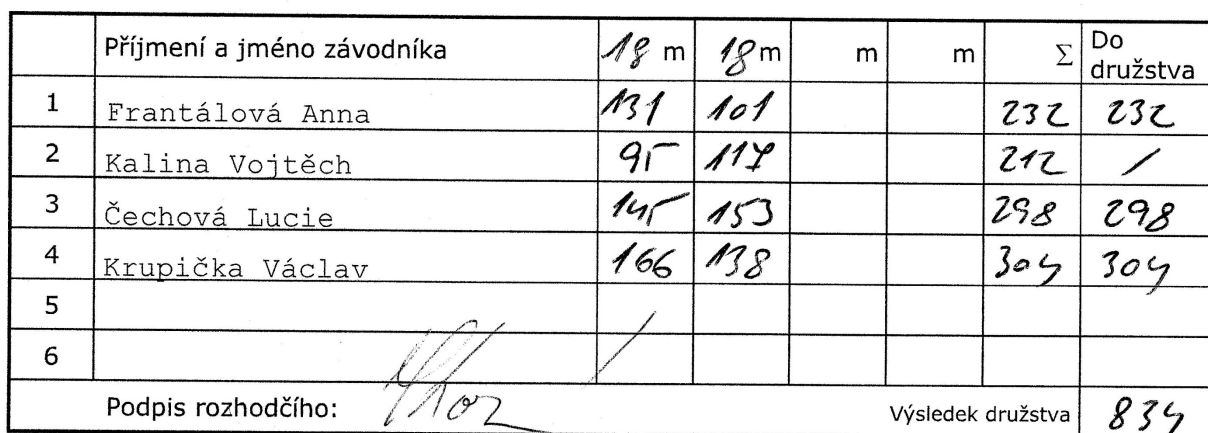 Příjmení a jméno závodníka 18 m 18 m m m Σ Do družstva
1 Frantálová Anna 131 101 232 232
2 Kalina Vojtěch 95 117 212 /
3 Čechová Lucie 145 153 298 298
4 Krupička Václav 166 138 304 304
5
6
Podpis rozhodčího: Výsledek družstva 834